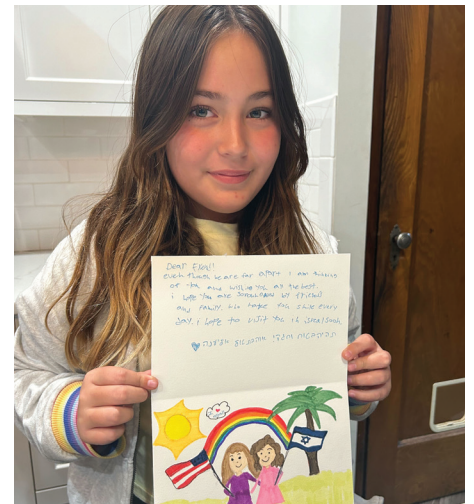 Dear
even though we are far apart i am thinking
of you and wishing you all the best.
i hope you are surrounded by friends
and family. i hope you smile every
day. i hope to visit you in israel soon.